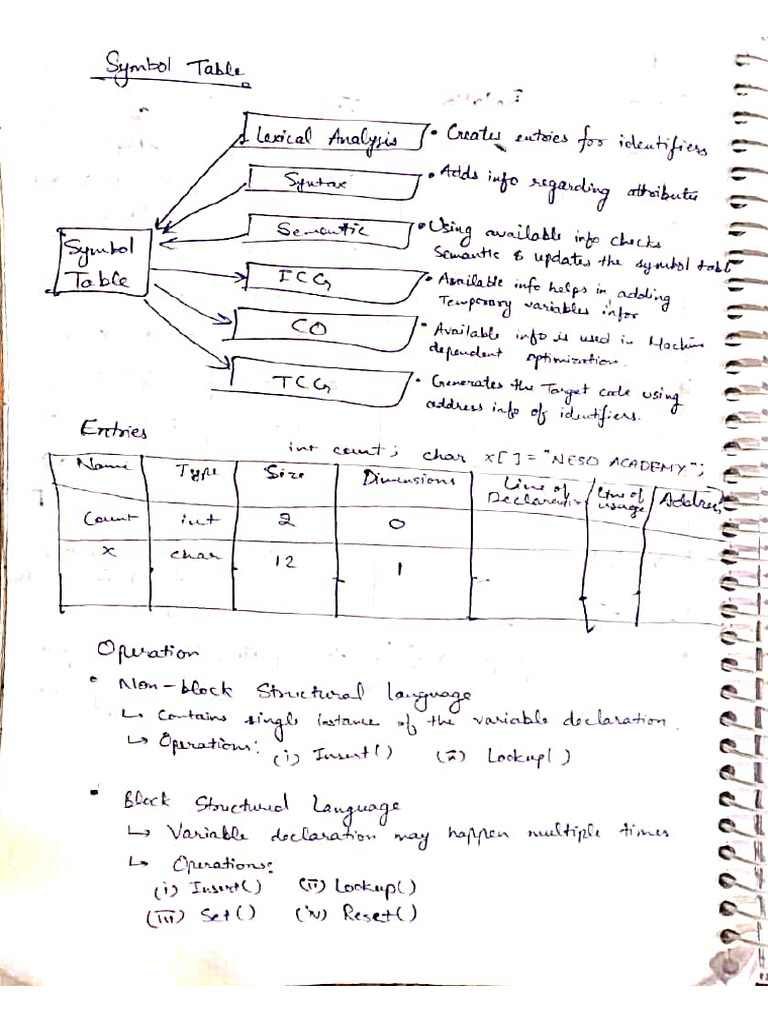 Symbol Table
Lexical Analysis • Creates entries for identifiers
Syntax • Adds info regarding attributes
Semantic • Using available info checks
Semantic & updates the symbol table
Symbol
Table
ICG • Available info helps in adding
Temporary variables infor
CO • Available info is used in Machine
dependent optimization.
TCG • Generates the Target code using
address info of identifiers.
Entries
int count; char x[] = "NESO ACADEMY";
Name Type Size Dimensions Line of Declaration Line of usage Address
Count int 2 0
x char 12 1
Operation
• Non-block Structural language
↳ Contains single instance of the variable declaration.
↳ Operations: (i) Insert() (ii) Lookup()
• Block Structured Language
↳ Variable declaration may happen multiple times
↳ Operations:
(i) Insert() (ii) Lookup()
(iii) Set() (iv) Reset()